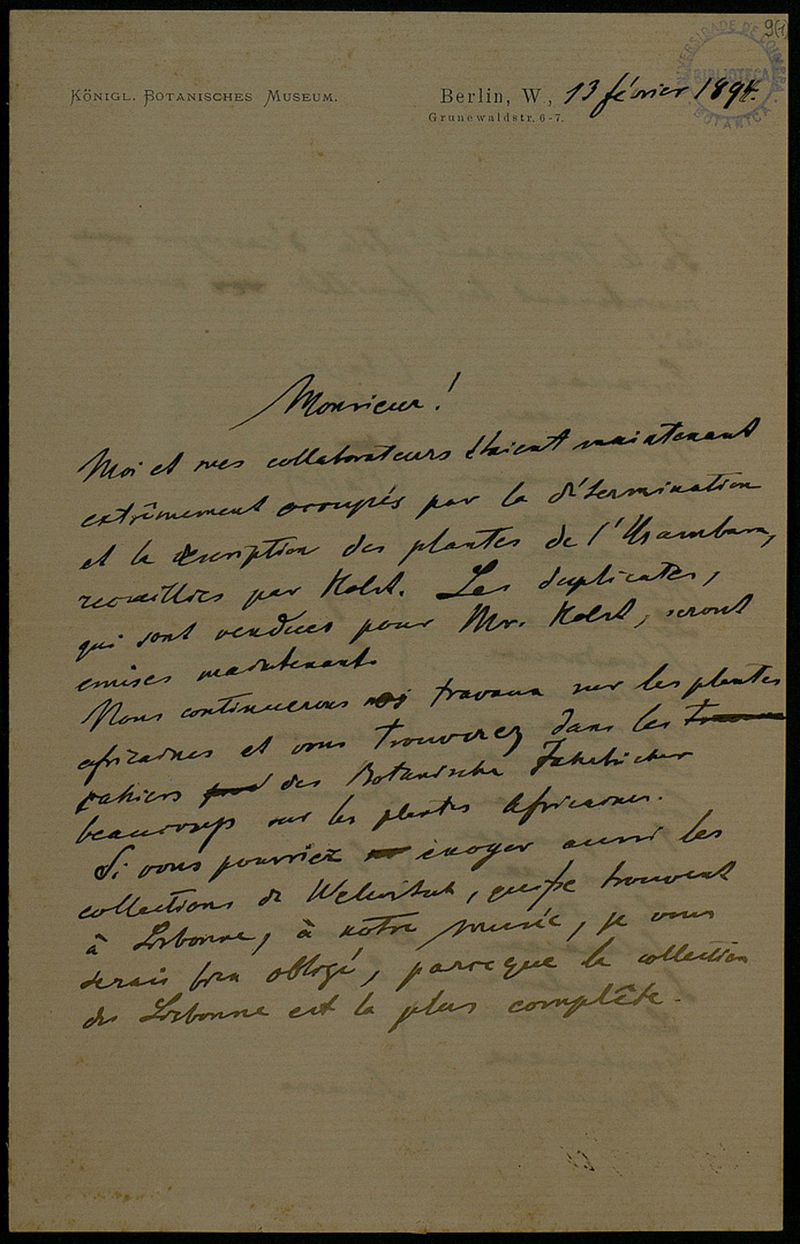 9(1)
UNIVERSIDADE DE COIMBRA
BIBLIOTECA
BOTANICA
KÖNIGL. BOTANISCHES MUSEUM.
Berlin, W., 13 février 1894.
Grunewaldstr. 6-7.
Monsieur!
Moi et mes collaborateurs étaient maintenant
extrêmement occupés par la détermination
et la description des plantes de l'Usambara,
recueillies par Holst. Les duplicates,
qui sont vendues pour Mr. Holst, seront
emises maintenant.
Nous continuerons nos travaux sur les plantes
africaines et vous trouverez dans les
cahiers des Botanische Jahrbücher
beaucoup sur les plantes Africaines.
Si vous pourriez envoyer aussi les
collections de Welwitsch, qui se trouvent
à Lisbonne, à notre musée, je vous
serais bien obligé, parceque la collection
de Lisbonne est la plus complête.